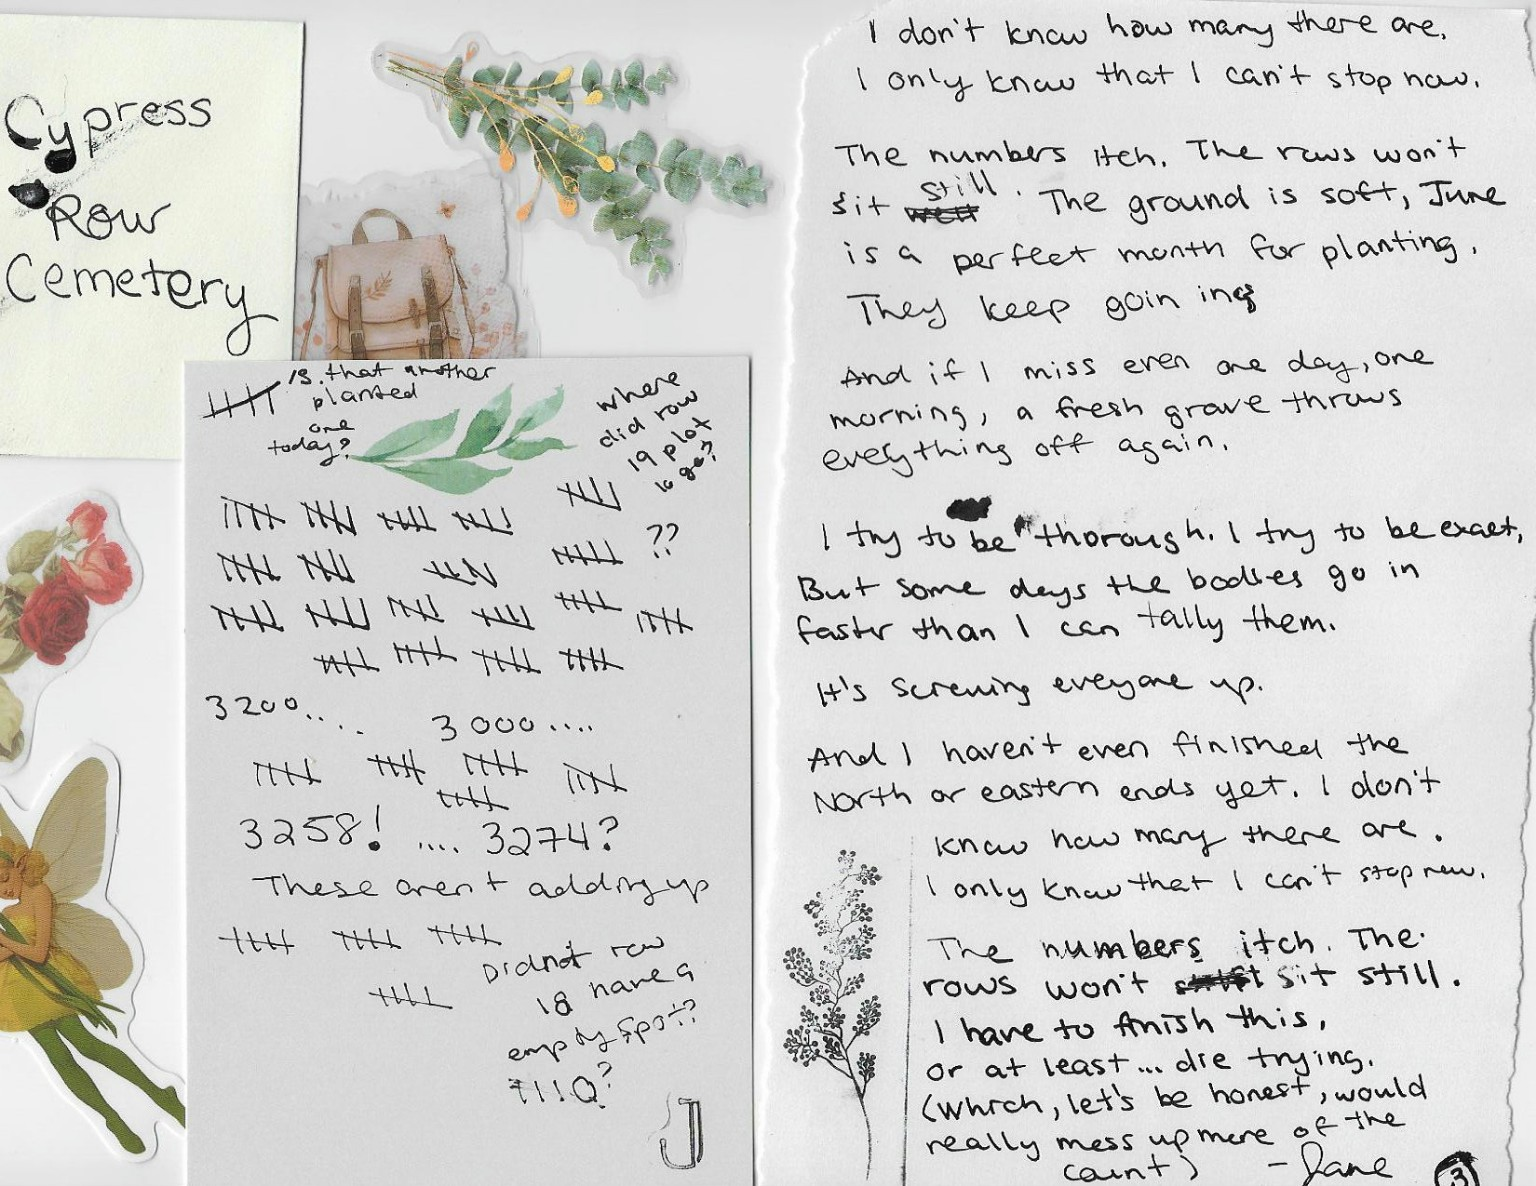 Cypress
Row
Cemetery
is that another
planted
one
today?
where
did row
19 plot
16 go?
??
3200....
3000....
3258! .... 3274?
These aren't adding up
Didn't row
18 have a
empty spot?
J
I don't know how many there are.
I only know that I can't stop now.
The numbers itch. The rows won't
sit still. The ground is soft, June
is a perfect month for planting.
They keep goin ing
And if I miss even one day, one
morning, a fresh grave throws
everything off again.
I try to be thorough. I try to be exact,
But some days the bodies go in
faster than I can tally them.
It's screwing everyone up.
And I haven't even finished the
North or eastern ends yet. I don't
know how many there are.
I only know that I can't stop now.
The numbers itch. The
rows won't sit still.
I have to finish this,
or at least... die trying.
(Which, let's be honest, would
really mess up more of the
count)
-Jane
3